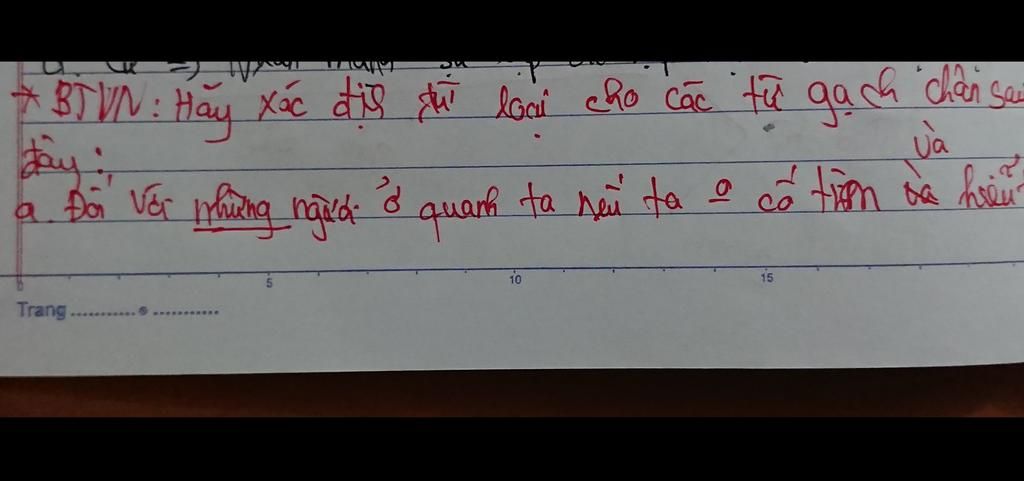 * BTVN: Hãy xác địh từ loại cho các từ gạch chân sau
đây:
và
a. Đối với những người ở quanh ta nếu ta o cố tìm và hiểu
5 10 15
Trang